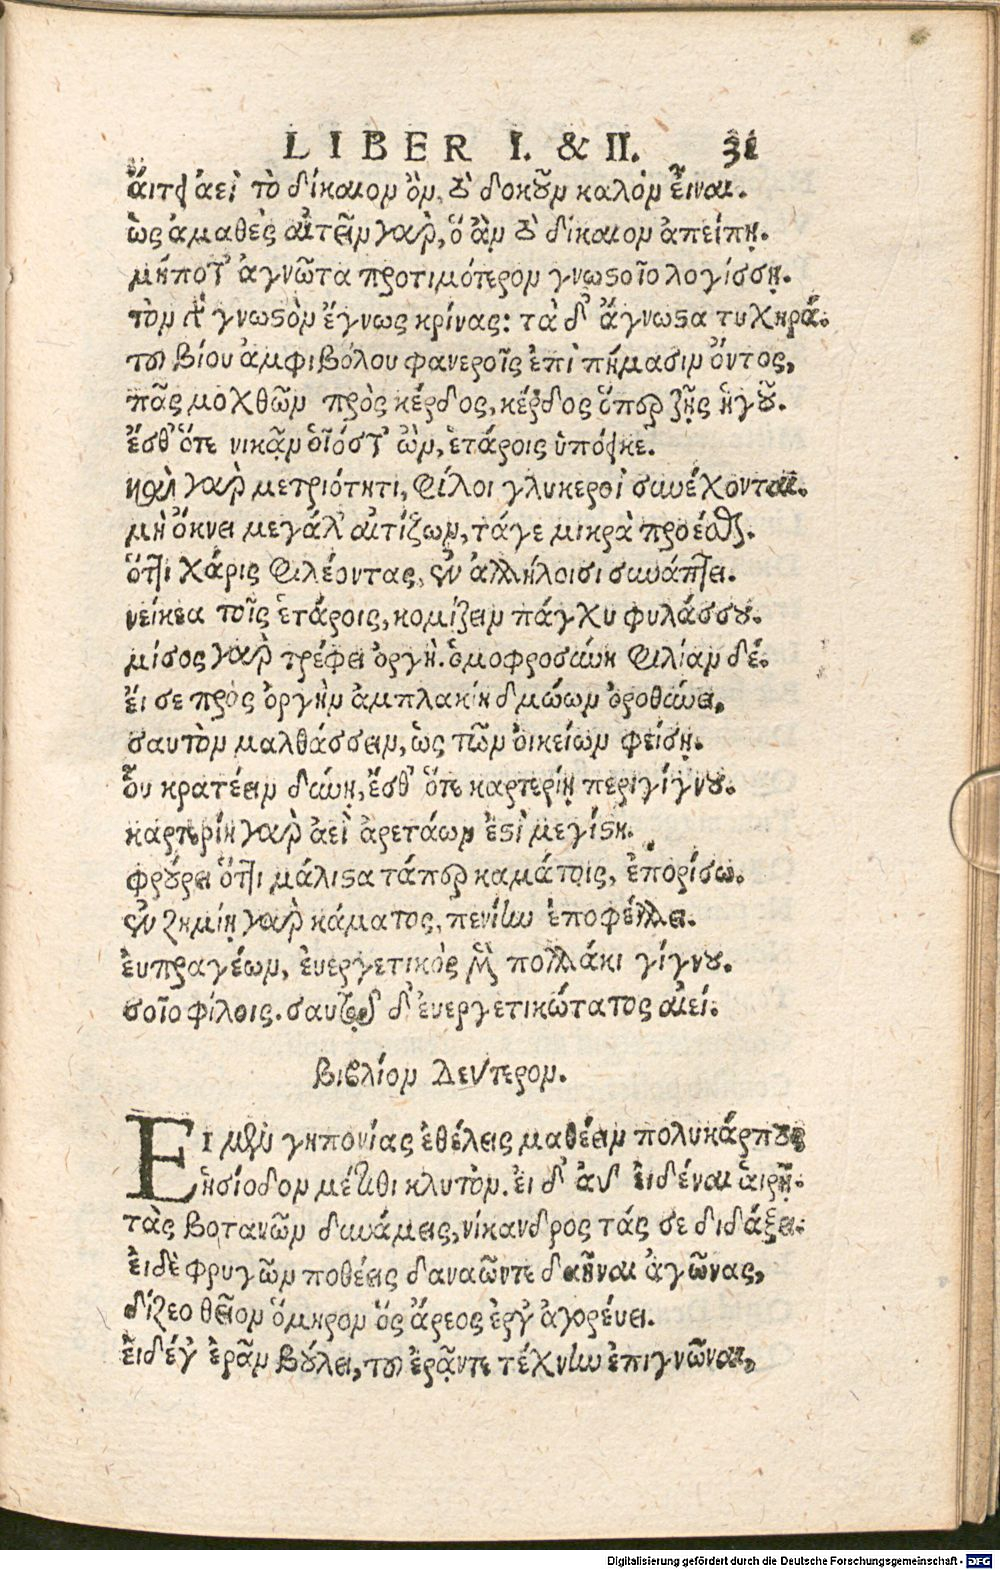 LIBER I. & II. 31
ἄιτει ἀεὶ τὸ δίκαιον ὂν, οὐ δοκοῦν καλὸν εἶναι.
ὡς ἀμαθὲς αἰτεῖν γὰρ, ὅ ἂν οὐ δίκαιον ἀπείπῃ.
μήποτ' ἀγνῶτα προτιμότερον γνωστοῖο λογίσσῃ.
τὸν γνωστὸν ἔγνως κρίνας: τὰ δ' ἄγνωστα τυχηρά.
του βίου ἀμφιβόλου φανεροῖς ἐπὶ πήμασιν ὄντος,
πᾶς μοχθῶν πρὸς κέρδος, κέρδος ὅπερ ζῇς ἡγοῦ.
ἔσθ' ὅτε νικᾷν οἷόστ' ὢν, ἑτάροις ὑπόεικε.
καὶ γὰρ μετριότητι, φίλοι γλυκεροὶ συνέχονται.
μὴ ὄκνει μεγάλ' αἰτίζων, τάγε μικρὰ προέσθαι.
ὅττι χάρις φιλέοντας, σὺν ἀλλήλοισι συνάπτει.
νείκεα τοῖς ἑτάροις, κομίζειν πάγχυ φυλάσσου.
μίσος γὰρ τρέφει ὀργὴ. ὁμοφροσύνη φιλίαν δέ.
ἔι σε πρὸς ὀργὴν ἀμπλακίη δμώων ὀροθύνει,
σαυτὸν μαλθάσσειν, ὡς τῶν ὀικείων φείσῃ.
οὗ κρατέειν δύνῃ, ἔσθ' ὅτε καρτερίῃ περιγίγνου.
καρτερίη γὰρ ἀεὶ ἀρετάων ἐστὶ μεγίστη.
φρούρει ὅττι μάλιστα τάπερ καμάτοις, ἐπορίσω.
σὺν ζημίῃ γὰρ κάματος, πενίην ἐποφέλλει.
ἐυπραγέων, ἐυεργετικὸς μὲν πολλάκι γίγνου.
σοῖο φίλοις. σαυτοῦ δ' ἐυεργετικώτατος αἰεί.
Βιβλίον Δεύτερον.
ΕΙ μὲν γηπονίας ἐθέλεις μαθέειν πολυκάρπους
ἡσίοδον μέτιθι κλυτὸν. ἐι δ' αὖ ἐιδέναι ἁιρῇ.
τὰς βοτανῶν δυνάμεις, νίκανδρος τάς σε διδάξει.
ἐιδὲ φρυγῶν ποθέεις δαναῶντε δαῆναι ἀγῶνας,
δίζεο θεῖον ὅμηρον ὅς ἄρεος ἐργ' ἀγορέυει.
ἐιδέγ' ἐρᾶν βούλει, του ἐρᾷντε τέχνην ἐπιγνῶναι,
Digitalisierung gefördert durch die Deutsche Forschungsgemeinschaft - DFG